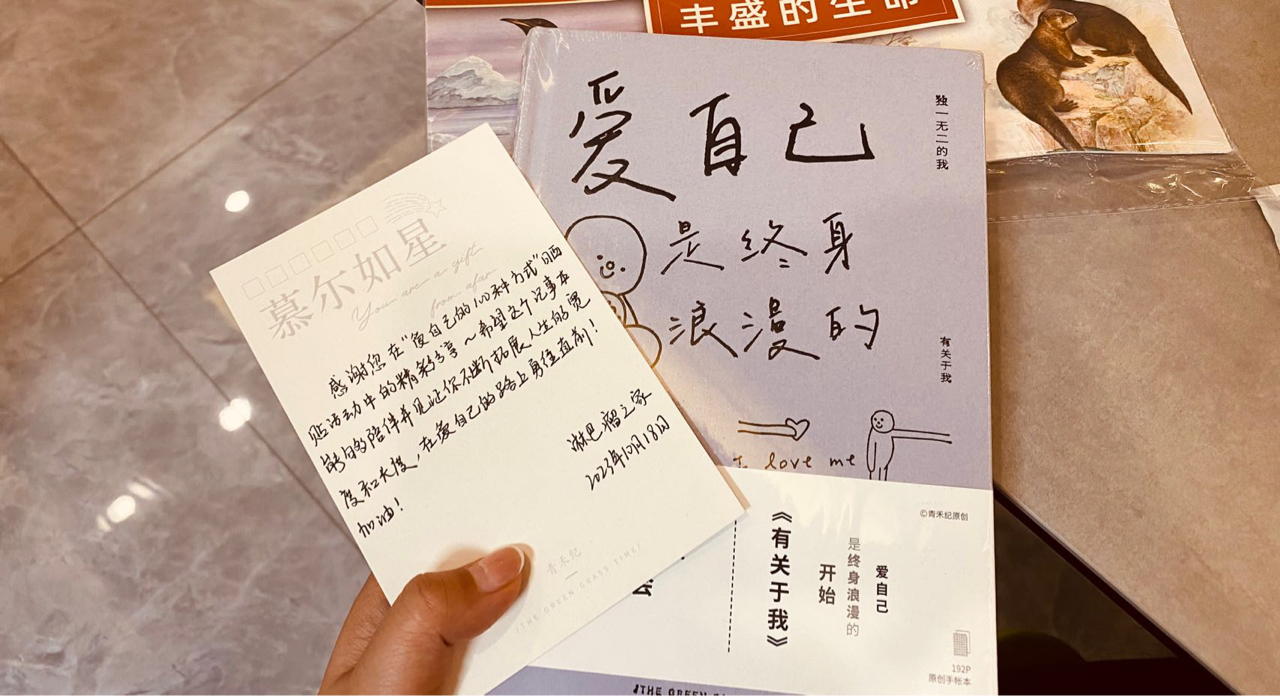 丰盛的生命
爱自己
是终身
浪漫的
独一无二的我
有关于我
I love me
©青禾纪原创
《有关于我》
爱自己
是终身浪漫的
开始
192P
原创手帐本
THE GREEN
慕尔如星
You are a gift
from afar
感谢您在"爱自己的100种方式"晒
贴活动中的精彩分享~希望这个记事本
能够陪伴并见证你不断拓展人生的宽
度和长度,在爱自己的路上勇往直前!
加油!
淋巴瘤之家
2023年10月18日
青禾纪
/THE GREEN GRASS TIME/